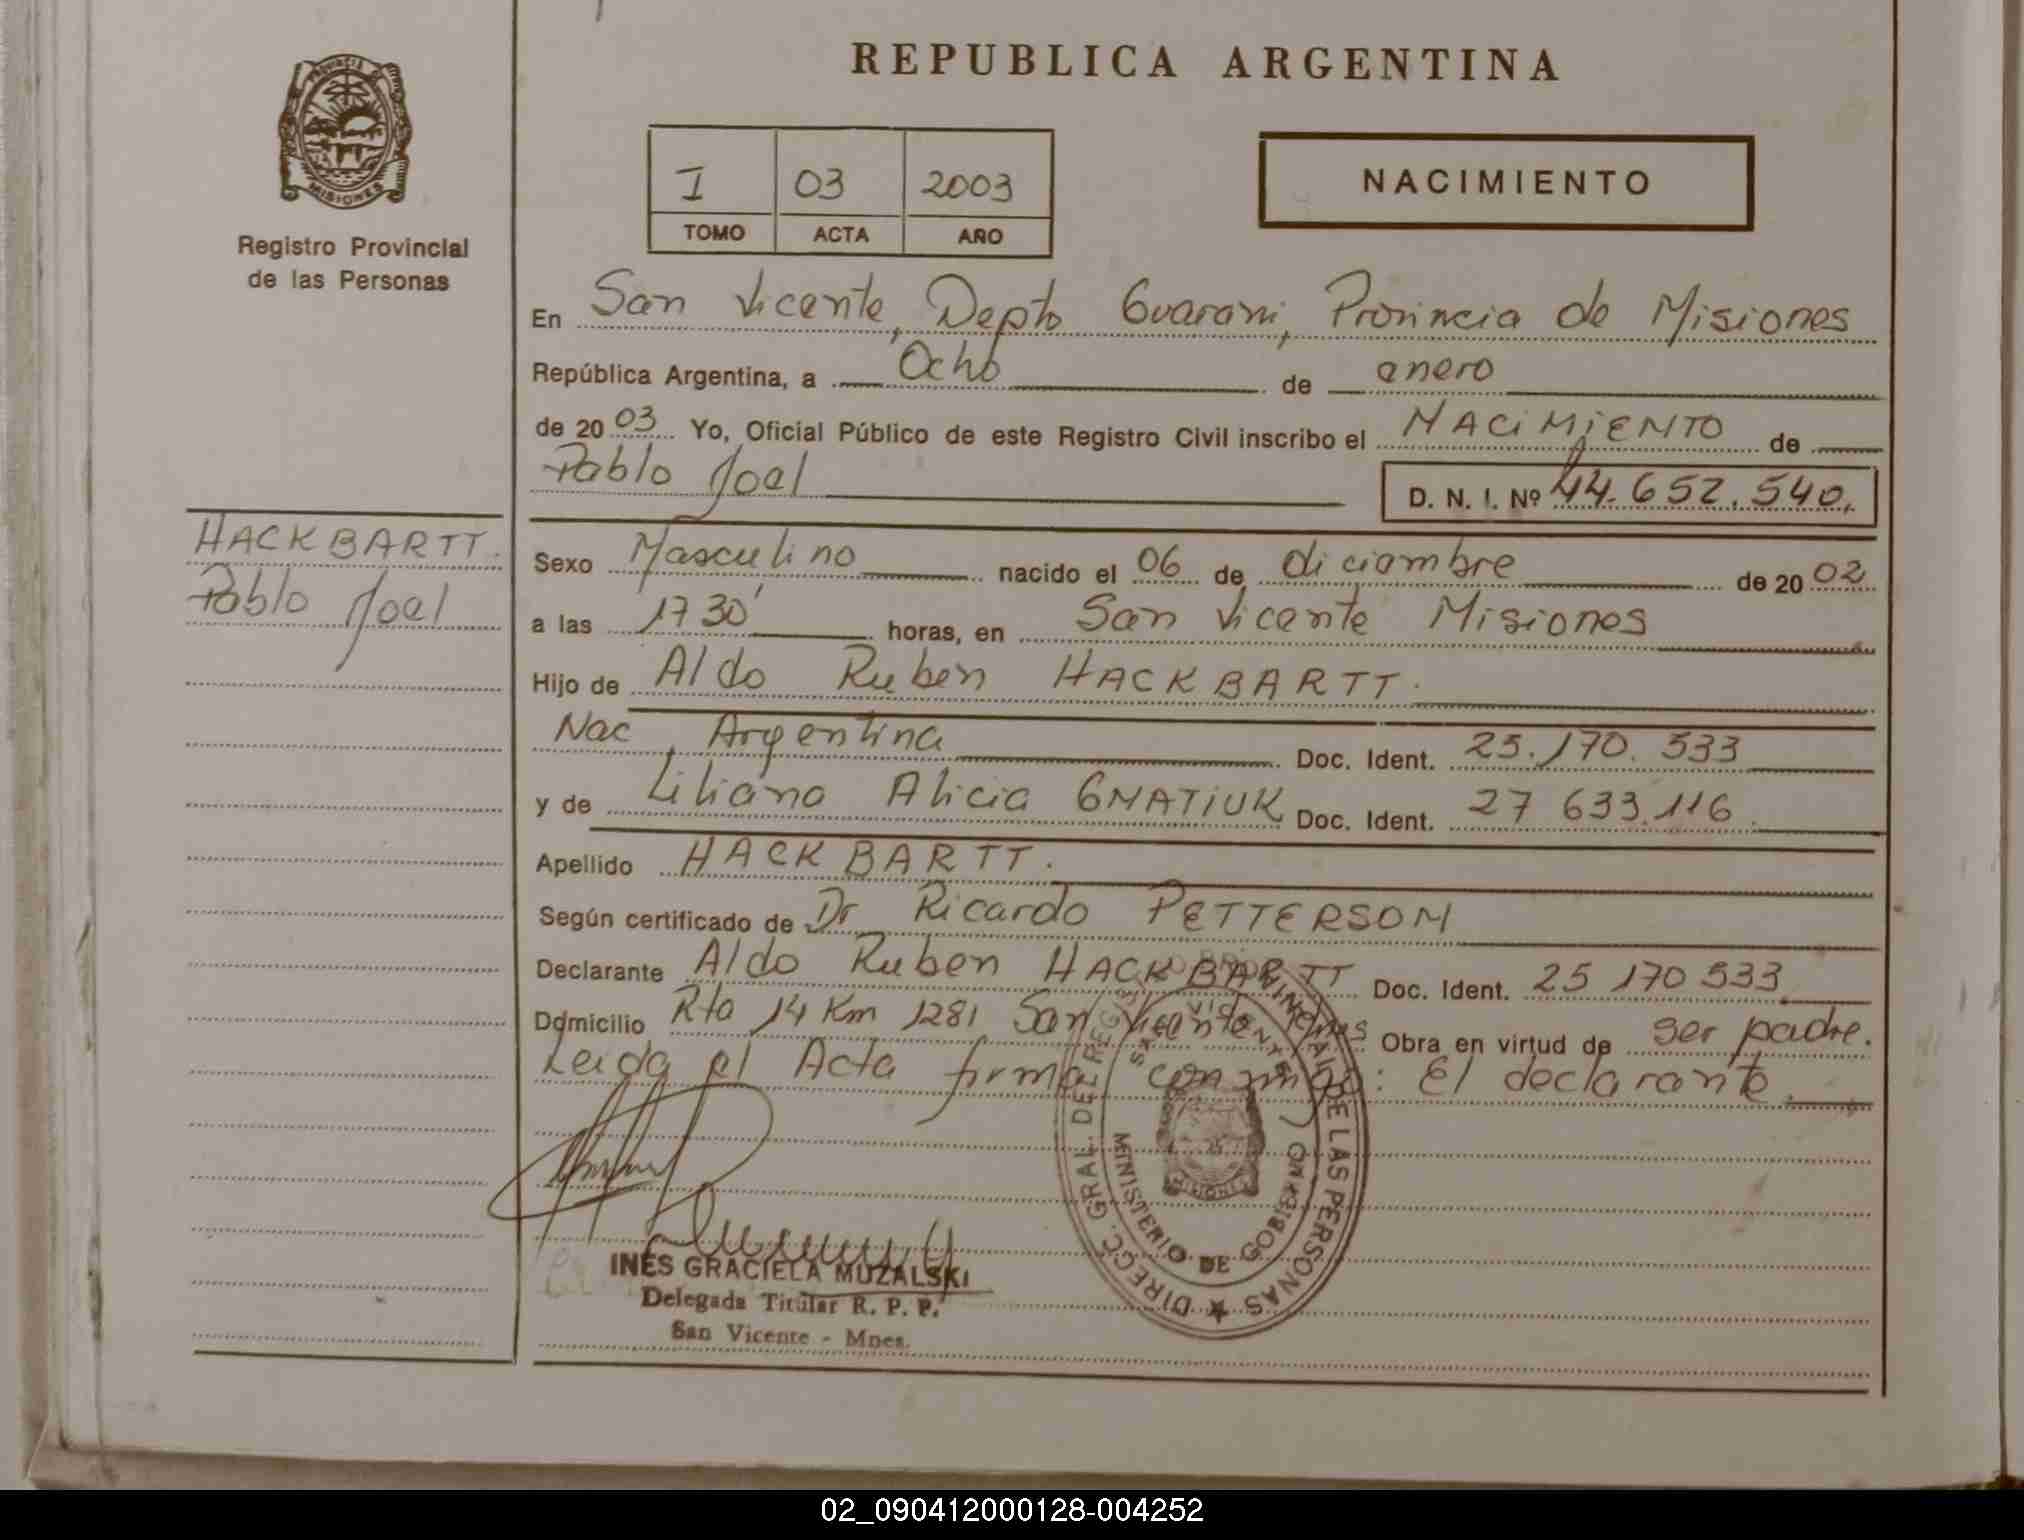 REPUBLICA ARGENTINA
PROVINCIA DE MISIONES
Registro Provincial
de las Personas
I 03 2003
TOMO ACTA AÑO
NACIMIENTO
En San Vicente, Depto Guarani, Provincia de Misiones
República Argentina, a Ocho de enero
de 2003 Yo, Oficial Público de este Registro Civil inscribo el NACIMIENTO de
Pablo Joel D. N. I. Nº 44.652.540.
HACKBARTT.
Pablo Joel
Sexo Masculino nacido el 06 de diciembre de 2002
a las 17 30' horas, en San Vicente Misiones
Hijo de Aldo Ruben HACKBARTT.
Nac. Argentina Doc. Ident. 25.170.533
y de Liliana Alicia GNATIUK Doc. Ident. 27 633.116
Apellido HACKBARTT.
Según certificado de Dr Ricardo PETTERSON
Declarante Aldo Ruben HACKBARTT Doc. Ident. 25 170 533
Domicilio Rta 14 Km 1281 San Vicente Mnes Obra en virtud de ser padre.
Leida el Acta firma conmigo: El declarante.
DIRECC. GRAL. DEL REGISTRO PROVINCIAL DE LAS PERSONAS
SAN VICENTE
MINISTERIO DE GOBIERNO
MISIONES
INÉS GRACIELA MUZALSKI
Delegada Titular R. P. P.
San Vicente - Mnes.
02_090412000128-004252